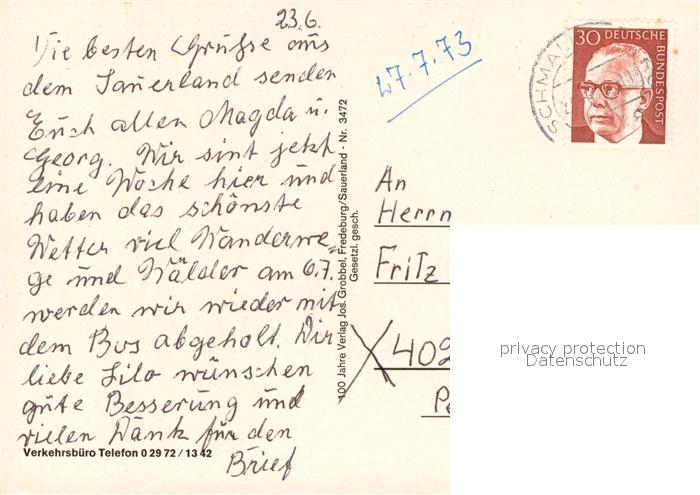 23.6.
Die besten Grüße aus
dem Sauerland senden
Euch allen Magda u.
Georg. Wir sint jetzt
eine Woche hier und
haben das schönste
Wetter viel Wanderwe-
ge und Wälder am 6.7.
werden wir wieder mit
dem Bus abgeholt. Dir
liebe Lilo wünschen
gute Besserung und
vielen Dank für den
Brief
Verkehrsbüro Telefon 0 29 72 / 13 42
100 Jahre Verlag Jos. Grobbel, Fredeburg/Sauerland - Nr. 3472
Gesetzl. gesch.
7.7.73
30 DEUTSCHE
BUNDESPOST
SCHMAL
An
Herrn
Fritz
402
privacy protection
Datenschutz